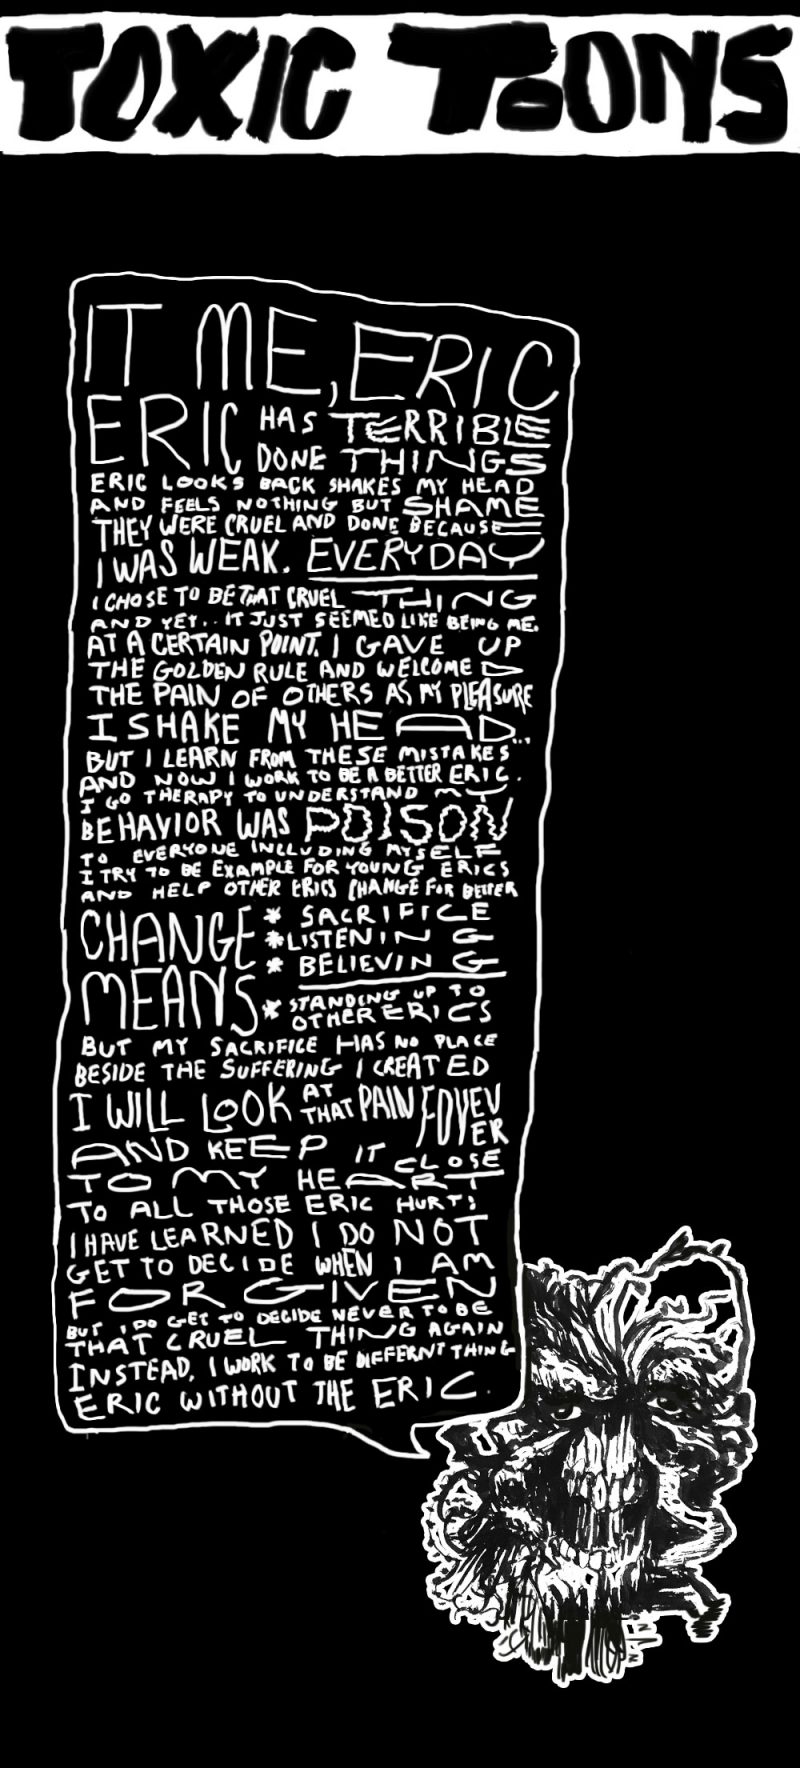 TOXIC TOONS
IT ME, ERIC
ERIC HAS TERRIBLE
DONE THINGS
ERIC LOOKS BACK SHAKES MY HEAD
AND FEELS NOTHING BUT SHAME
THEY WERE CRUEL AND DONE BECAUSE
I WAS WEAK. EVERYDAY
I CHOSE TO BE THAT CRUEL THING
AND YET.. IT JUST SEEMED LIKE BEING ME.
AT A CERTAIN POINT, I GAVE UP
THE GOLDEN RULE AND WELCOMED
THE PAIN OF OTHERS AS MY PLEASURE
I SHAKE MY HEAD...
BUT I LEARN FROM THESE MISTAKES
AND NOW I WORK TO BE A BETTER ERIC.
I GO THERAPY TO UNDERSTAND MY
BEHAVIOR WAS POISON
TO EVERYONE INCLUDING MYSELF
I TRY TO BE EXAMPLE FOR YOUNG ERICS
AND HELP OTHER ERICS CHANGE FOR BETTER
CHANGE MEANS
* SACRIFICE
* LISTENING
* BELIEVING
* STANDING UP TO
OTHER ERICS
BUT MY SACRIFICE HAS NO PLACE
BESIDE THE SUFFERING I CREATED
I WILL LOOK AT THAT PAIN FOYEVER
AND KEEP IT CLOSE
TO MY HEART
TO ALL THOSE ERIC HURT:
I HAVE LEARNED I DO NOT
GET TO DECIDE WHEN I AM
FORGIVEN
BUT I DO GET TO DECIDE NEVER TO BE
THAT CRUEL THING AGAIN
INSTEAD, I WORK TO BE DIFFERNT THING
ERIC WITHOUT THE ERIC.